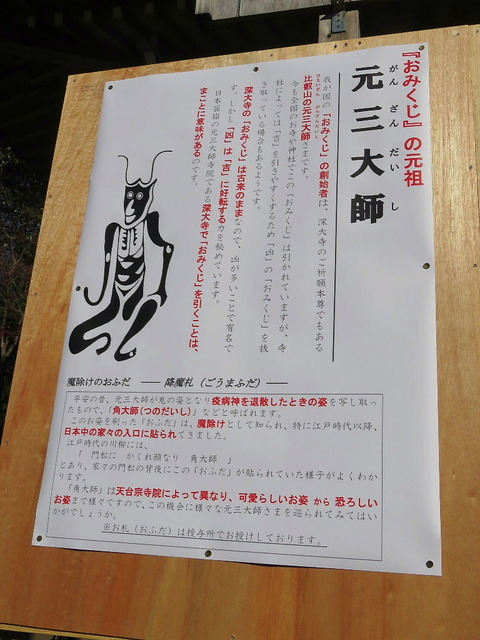 『おみくじ』の元祖
がん ざん だい し
元三大師
我が国の「おみくじ」の創始者は、深大寺のご祈願本尊でもある
ひえいざん がんざんだいし
比叡山の元三大師さまです。
今も全国のお寺や神社でこの「おみくじ」は引かれていますが、寺
社によっては「吉」を引きやすくするため「凶」の「おみくじ」を抜
き取っている場合もあるようです。
深大寺の「おみくじ」は古来のままなので、凶が多いことで有名で
す。しかし「凶」は「吉」に好転する力を秘めています。
日本屈指の元三大師寺院である深大寺で「おみくじ」を引くことは、
まことに意味があるのです。
魔除けのおふだ ― 降魔札（ごうまふだ）―
平安の昔、元三大師が鬼の姿となり疫病神を退散したときの姿を写し取っ
たもので、「角大師（つのだいし）」などと呼ばれます。
このお姿を刷った「おふだ」は、魔除けとして知られ、特に江戸時代以降、
日本中の家々の入口に貼られてきました。
江戸時代の川柳には、
「 門松に かくれ顔なり 角大師 」
とあり、家々の門松の背後にこの「おふだ」が貼られていた様子がよくわか
ります。
「角大師」は天台宗寺院によって異なり、可愛らしいお姿 から 恐ろしい
お姿まで様々ですので、この機会に様々な元三大師さまを巡られてみてはい
かがでしょうか。
※お札（おふだ）は授与所でお授けしております。